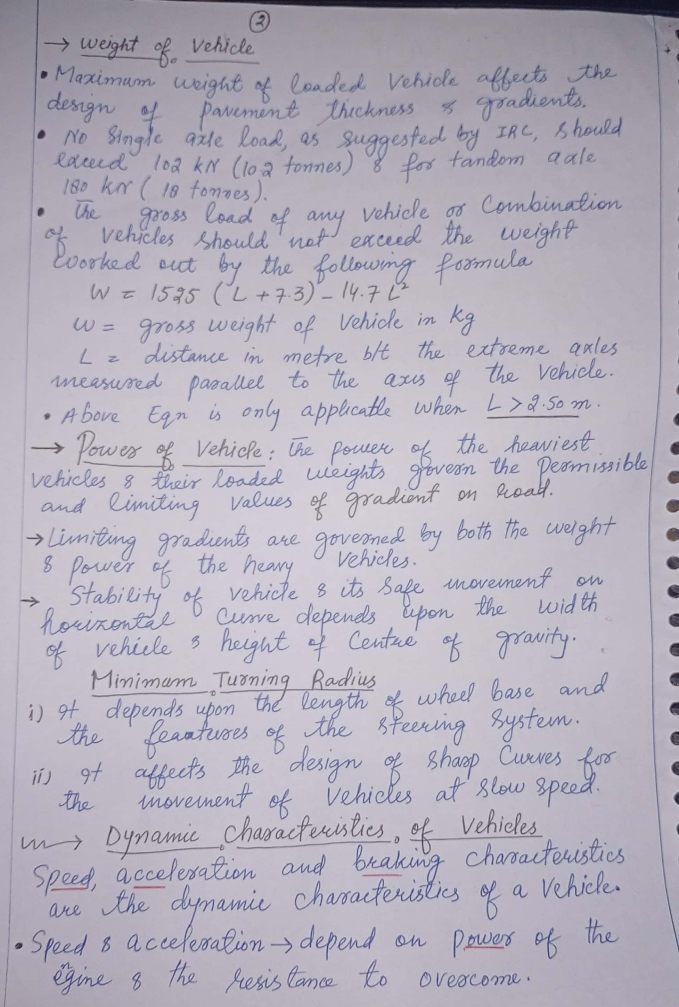 2
→ Weight of Vehicle
• Maximum weight of loaded Vehicle affects the
design of pavement thickness & gradients.
• No Single axle load, as suggested by IRC, should
exceed 102 kN (102 tonnes) & for tandom axle
180 kN ( 18 tonnes).
• The gross load of any vehicle or Combination
of vehicles should not exceed the weight
worked out by the following formula
W = 1525 (L + 7.3) - 14.7 L²
W = gross weight of Vehicle in kg
L = distance in metre b/t the extreme axles
measured parallel to the axis of the Vehicle.
• Above Eqn is only applicable when L > 2.50 m.
→ Power of Vehicle: The power of the heaviest
vehicles & their loaded weights govern the Permissible
and limiting values of gradient on road.
→ Limiting gradients are governed by both the weight
& power of the heavy vehicles.
→ Stability of vehicle & its safe movement on
horizontal curve depends upon the width
of vehicle & height of Centre of gravity.
Minimum Turning Radius
i) It depends upon the length of wheel base and
the feaatures of the steering System.
ii) It affects the design of Sharp Curves for
the movement of Vehicles at slow speed.
→ Dynamic Characteristics of Vehicles
Speed, acceleration and braking characteristics
are the dynamic characteristics of a Vehicle.
• Speed & acceleration → depend on power of the
engine & the resistance to overcome.